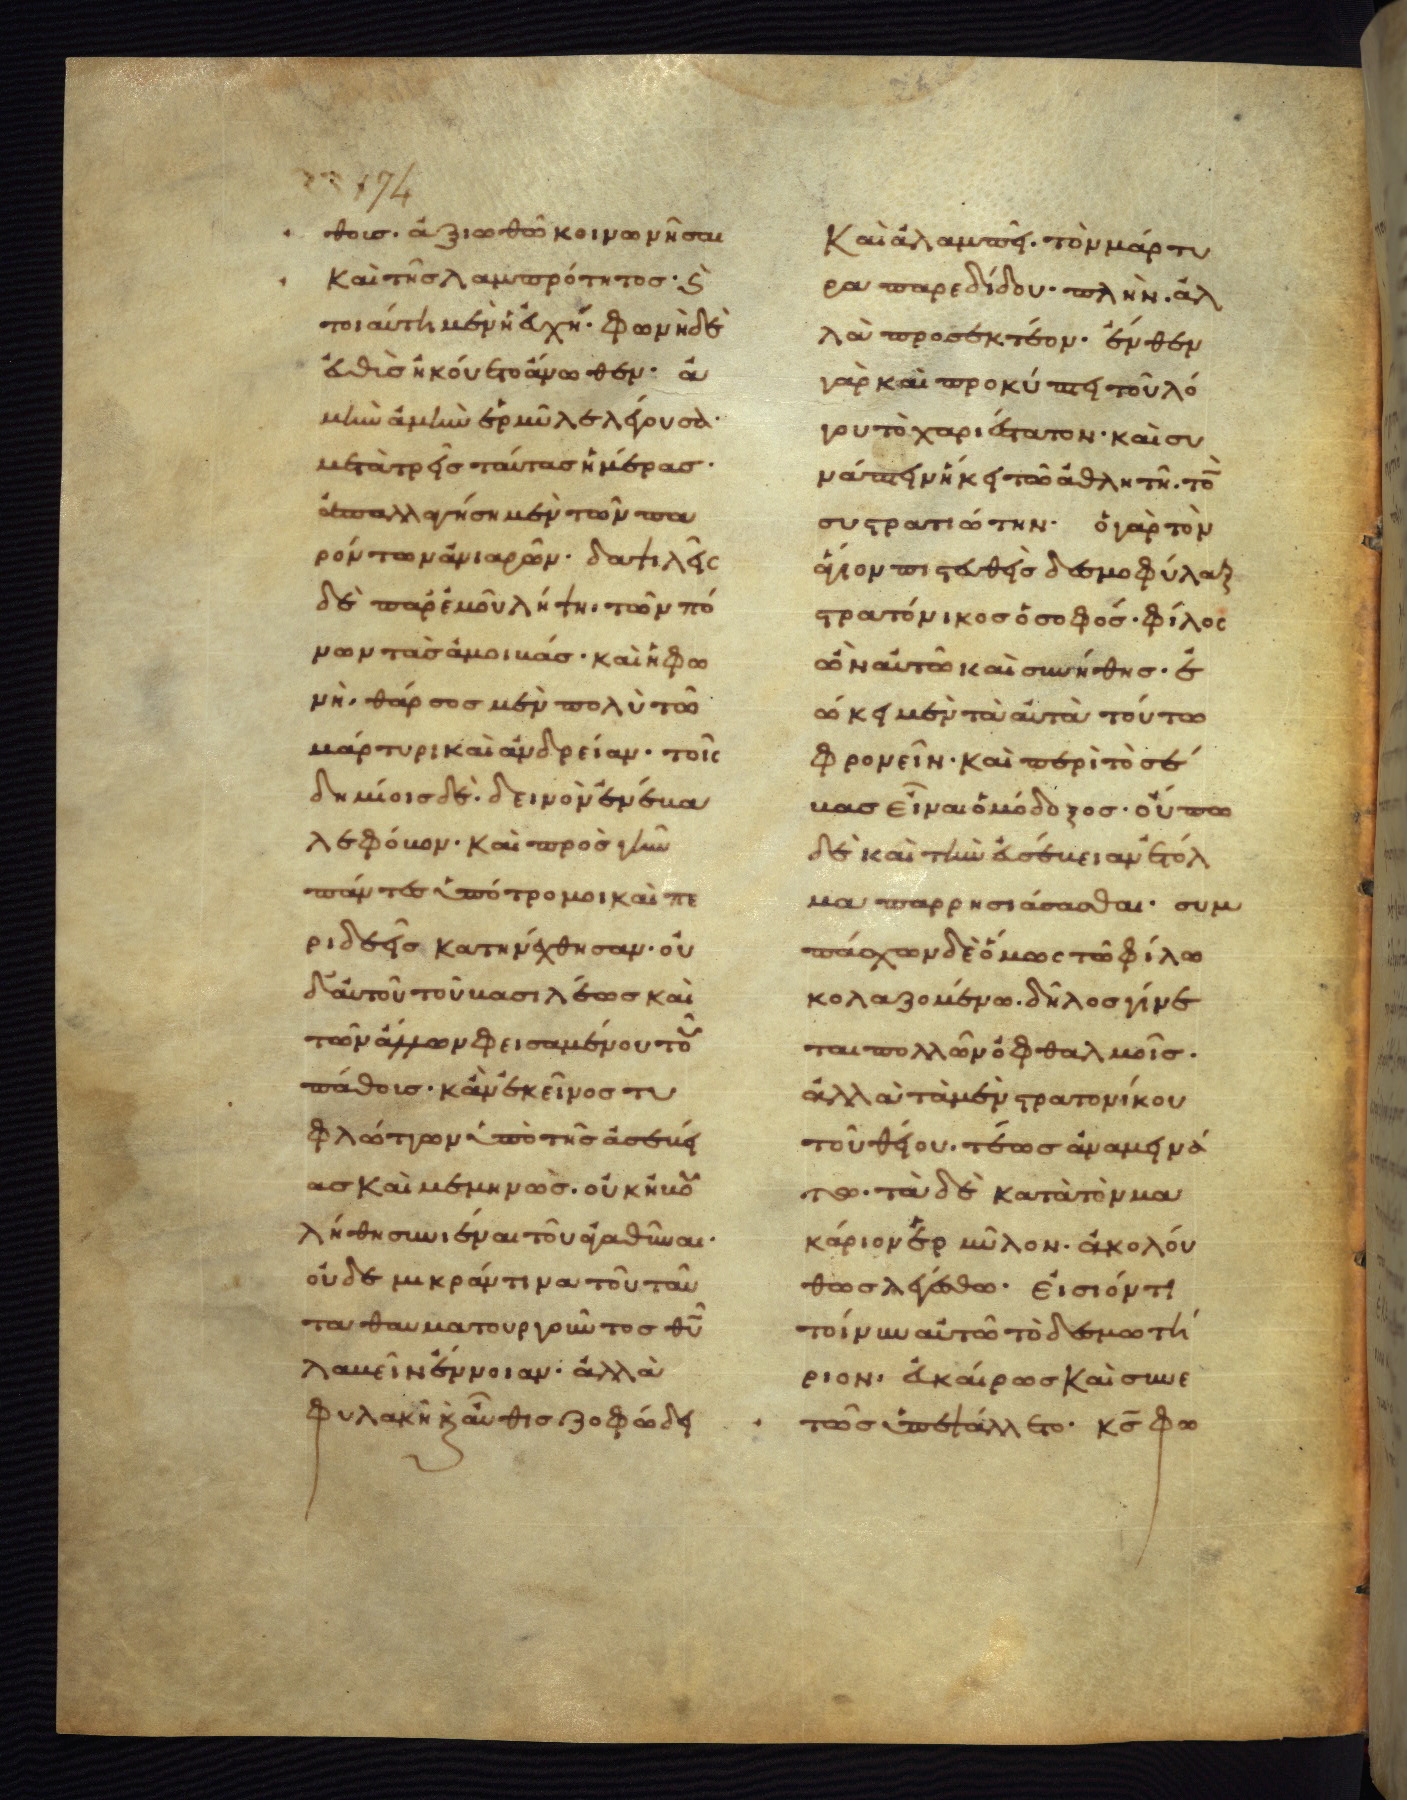 174
θοισ· ἀξιωθῶ κοινωνῆσαι
καὶ τῆσ λαμπρότητοσ· ἡ
τοιαύτη μὲν ἡ εὐχή· φωνὴ δὲ
εὐθὺσ ἠκούετο ἄνωθεν· ἀ
μὴν ἀμὴν ἕρμυλε λέγουσα·
μετὰ τρεῖσ ταύτασ ἡμέρασ·
ἀπαλλαγήση μὲν τῶν πα
ρόντων ἀνιαρῶν· δαψιλεῖς
δὲ παρ' ἐμοῦ λήψη· τῶν πό
νων τὰσ ἀμοιβάσ· καὶ ἡ φω
νὴ· θάρσοσ μὲν πολὺ τῶ
μάρτυρι καὶ ἀνδρείαν· τοῖς
δημίοισ δὲ· δεινὸν ἐνέβα
λε φόβον· καὶ πρὸσ γῆν
πάντεσ ὑπότρομοι καὶ πε
ριδεεῖσ κατηνέχθησαν· οὐ
δ' αὐτοῦ τοῦ βασιλέωσ καὶ
τῶν ἄλλων φεισαμένου τοῦ
πάθουσ· κἀν ἐκεῖνοσ τυ
φλώττων ὑπὸ τῆσ ἀσεβεί
ασ καὶ μεμηνὼσ· οὐκ ἠβου
λήθη συνιέναι τοῦ ἀγαθῦναι·
οὐδὲ μικράν τινα τοῦ ταῦ
τα θαυματουργοῦντοσ θῦ
λαβεῖν ἔννοιαν· ἀλλὰ
φυλακῆ κ αὖθισ ζοφώδει
Καὶ ἀλαμπεῖ· τὸν μάρτυ
ρα παρεδίδου· πλὴν· ἀλ
λὰ προσεκτέον· ἐνθεν
γὰρ καὶ προκύπτει τοῦ λό
γου τὸ χαριέστατον· καὶ συ
νάπτειν ἥκει τῶ ἀθλητῆ· τὸν
συστρατιώτην· ὁ γὰρ τὸν
ἅγιον πιστευθεὶσ δεσμοφύλαξ
στρατόνικοσ ὁ σοφόσ· φίλος
ὢν αὐτῶ καὶ συνήθησ· ἐ
ώκει μὲν τὰ αὐτὰ τούτω
φρονεῖν· καὶ περὶ τὸ σέ
βασ εἶναι ὁμόδοξοσ· οὔπω
δὲ καὶ τὴν εὐσέβειαν ἐτόλ
μα παρρησιάσασθαι· συμ
πάσχων δὲ ὅμως τῶ φίλω
κολαζομένω· δῆλοσ γίνε
ται πολλῶν ὀφθαλμοῖσ·
ἀλλὰ τὰ μὲν στρατονίκου
τοῦ θείου· τέωσ ἀναμεινά
τω· τὰ δὲ κατὰ τὸν μα
κάριον ἕρμυλον· ἀκολού
θωσ λεγέσθω· εἰσιόντι
τοίνυν αὐτῶ τὸ δεσμωτή
ριον· εὐκαίρωσ καὶ συνε
τῶσ ὑπεψάλλετο· κς φω